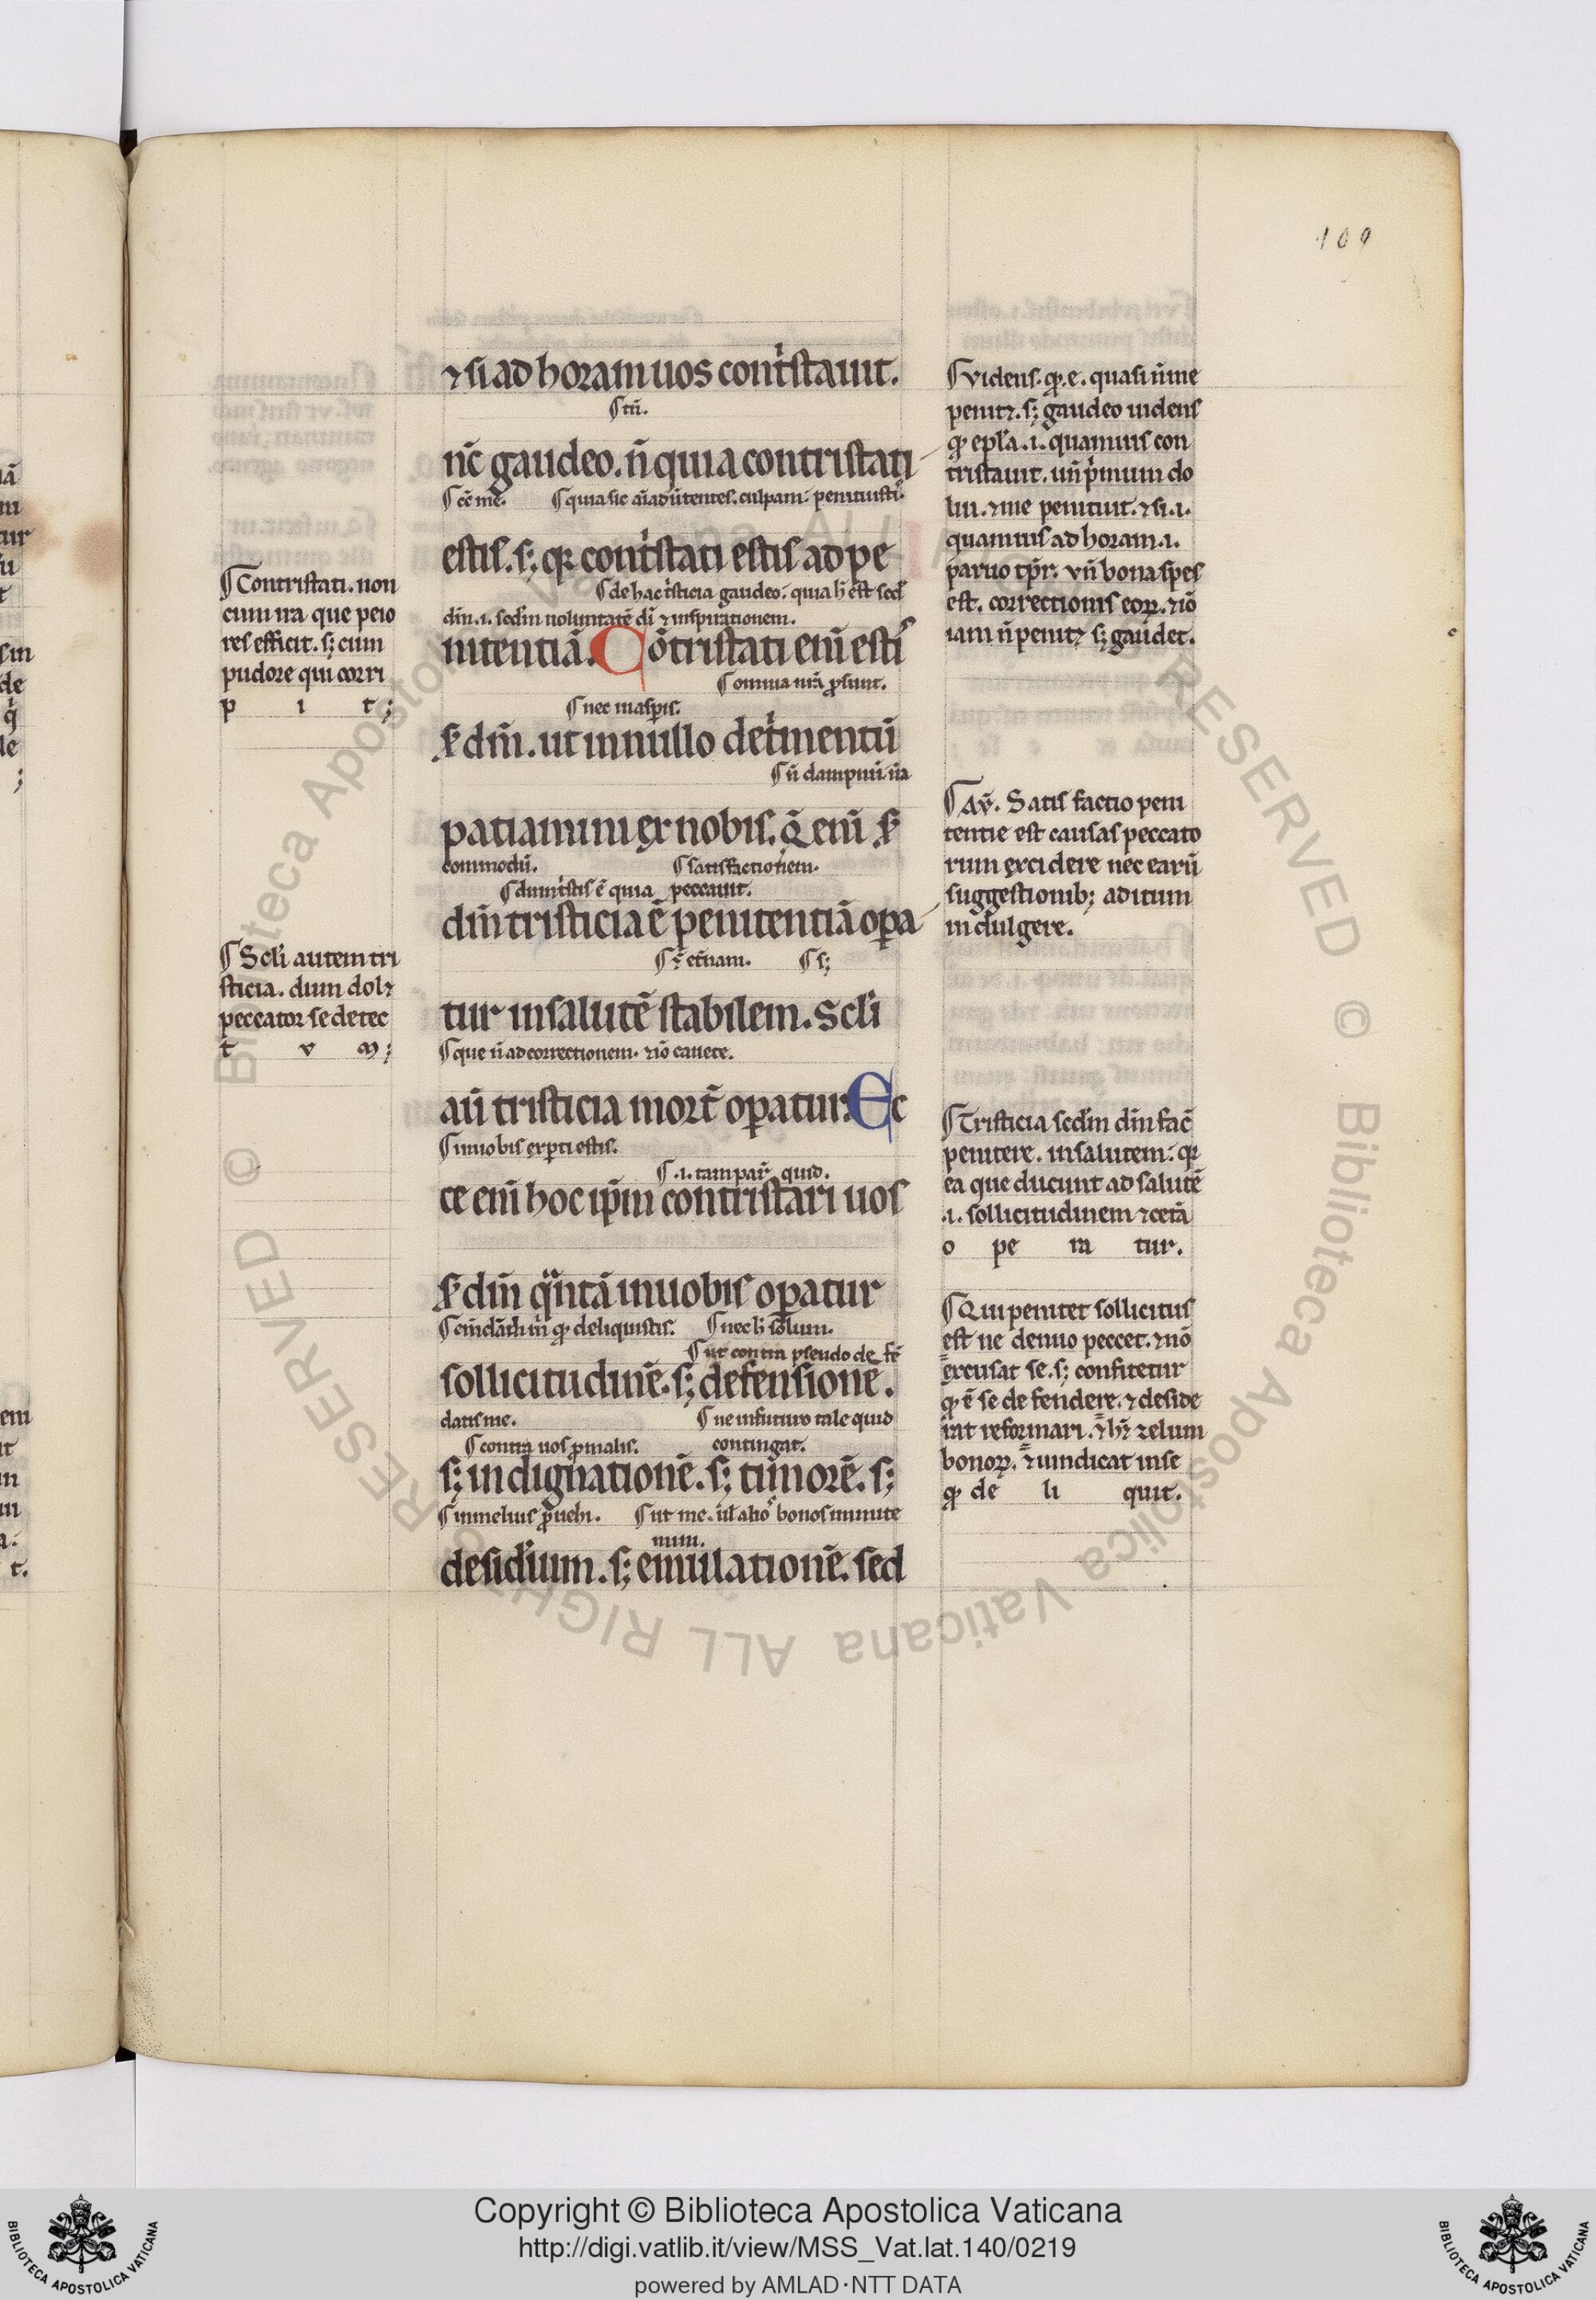 109
⁊ si ad horam uos cont͛stauit.
¶ tn̄.
nc̄ gaudeo. n̄ quia contristati
¶ cē me. ¶ quia sic aīaduertentes culpam. penituistis.
estis. s; qꝛ cont͛stati estis ad pe
¶ de hac t͛sticia gaudeo. quia h̄ est scd̄
dm̄. i. scd̄m uoluntatē dī ⁊ inspirationem.
nitentiā. Cōtristati enī estis
¶ omnia nr̄a ꝓsunt.
¶ nec in aspīs.
s̄ dm̄. ut in nullo det͛mentū
¶ n̄ dampnū. n̄ in
patiamini ex nobis. q̄ enī s̄
commodū. ¶ satisfactionem.
¶ dum t͛stis ē quia peccauit.
dm̄ tristicia ē penitentiā oꝑa
¶ ⁊̄ et̄nam. ¶ s;
tur in salutē stabilem. Scl̄i
¶ que n̄ ad correctionem. ⁊iō cauete.
aū tristicia mort̄ oꝑatur. Ec
¶ in uobis exꝑti estis.
¶ .i. tam par̄ quid.
ce enī hoc ip̄m contristari uos
s̄ dm̄ q̄ntā in uobis oꝑatur
¶ qꝫ deliquistis. ¶ nec h̄ solum.
¶ ut contra pseudo de fē
sollicitudinē. s; defensionē.
datis me. ¶ ne in futuro tale quid
¶ contra uos ꝓ malis. contingat.
s; indignationē. s; timorē. s;
¶ in melius ꝓuehi. ¶ ut me. ul̄ alios bonos inmite
mini.
desid͛ium. s; emulationē. sed
¶ Contristati. non
cum ira que peio
res efficit. s; cum
pudore qui corri
p i t;
¶ Scl̄i autem tri
sticia. dum dol⁊
peccator se detec
t v m;
¶ Videns. qꝫ. e. quasi n̄ me
penit⁊. s; gaudeo uidens
qꝫ epl̄a .i. quamuis con
tristauit. un̄ p͛mum do
lui. ⁊ me penituit. ⁊ si .i.
quamuis ad horam .i.
paruo tp̄r. vn̄ bona spes
est. correctionis eoꝝ. ⁊iō
iam n̄ penit⁊ s; gaudet.
¶ Av̄. Satisfactio peni
tentie est causas peccato
rum excidere nec earū
suggestionib; aditum
indulgere.
¶ Tristicia scd̄m dm̄ fac̄
penitere. in salutem. qꝛ
ea que ducunt ad salutē
.i. sollicitudinem ⁊ cetā
o pe ra tur.
¶ Qui penitet sollicitus
est ne denuo peccet. ⁊ nō
excusat se. s; confitetur
qꝫ ē se defendere. ⁊ deside
rat reformari. ⁊ h⁊ zelum
bonoꝝ. ⁊ uindicat in se
qꝫ de li quit.
Copyright © Biblioteca Apostolica Vaticana
http://digi.vatlib.it/view/MSS_Vat.lat.140/0219
powered by AMLAD·NTT DATA
BIBLIOTECA APOSTOLICA VATICANA
BIBLIOTECA APOSTOLICA VATICANA
© Biblioteca Apostolica Vaticana ALL RIGHTS RESERVED
© Biblioteca Apostolica Vaticana ALL RIGHTS RESERVED